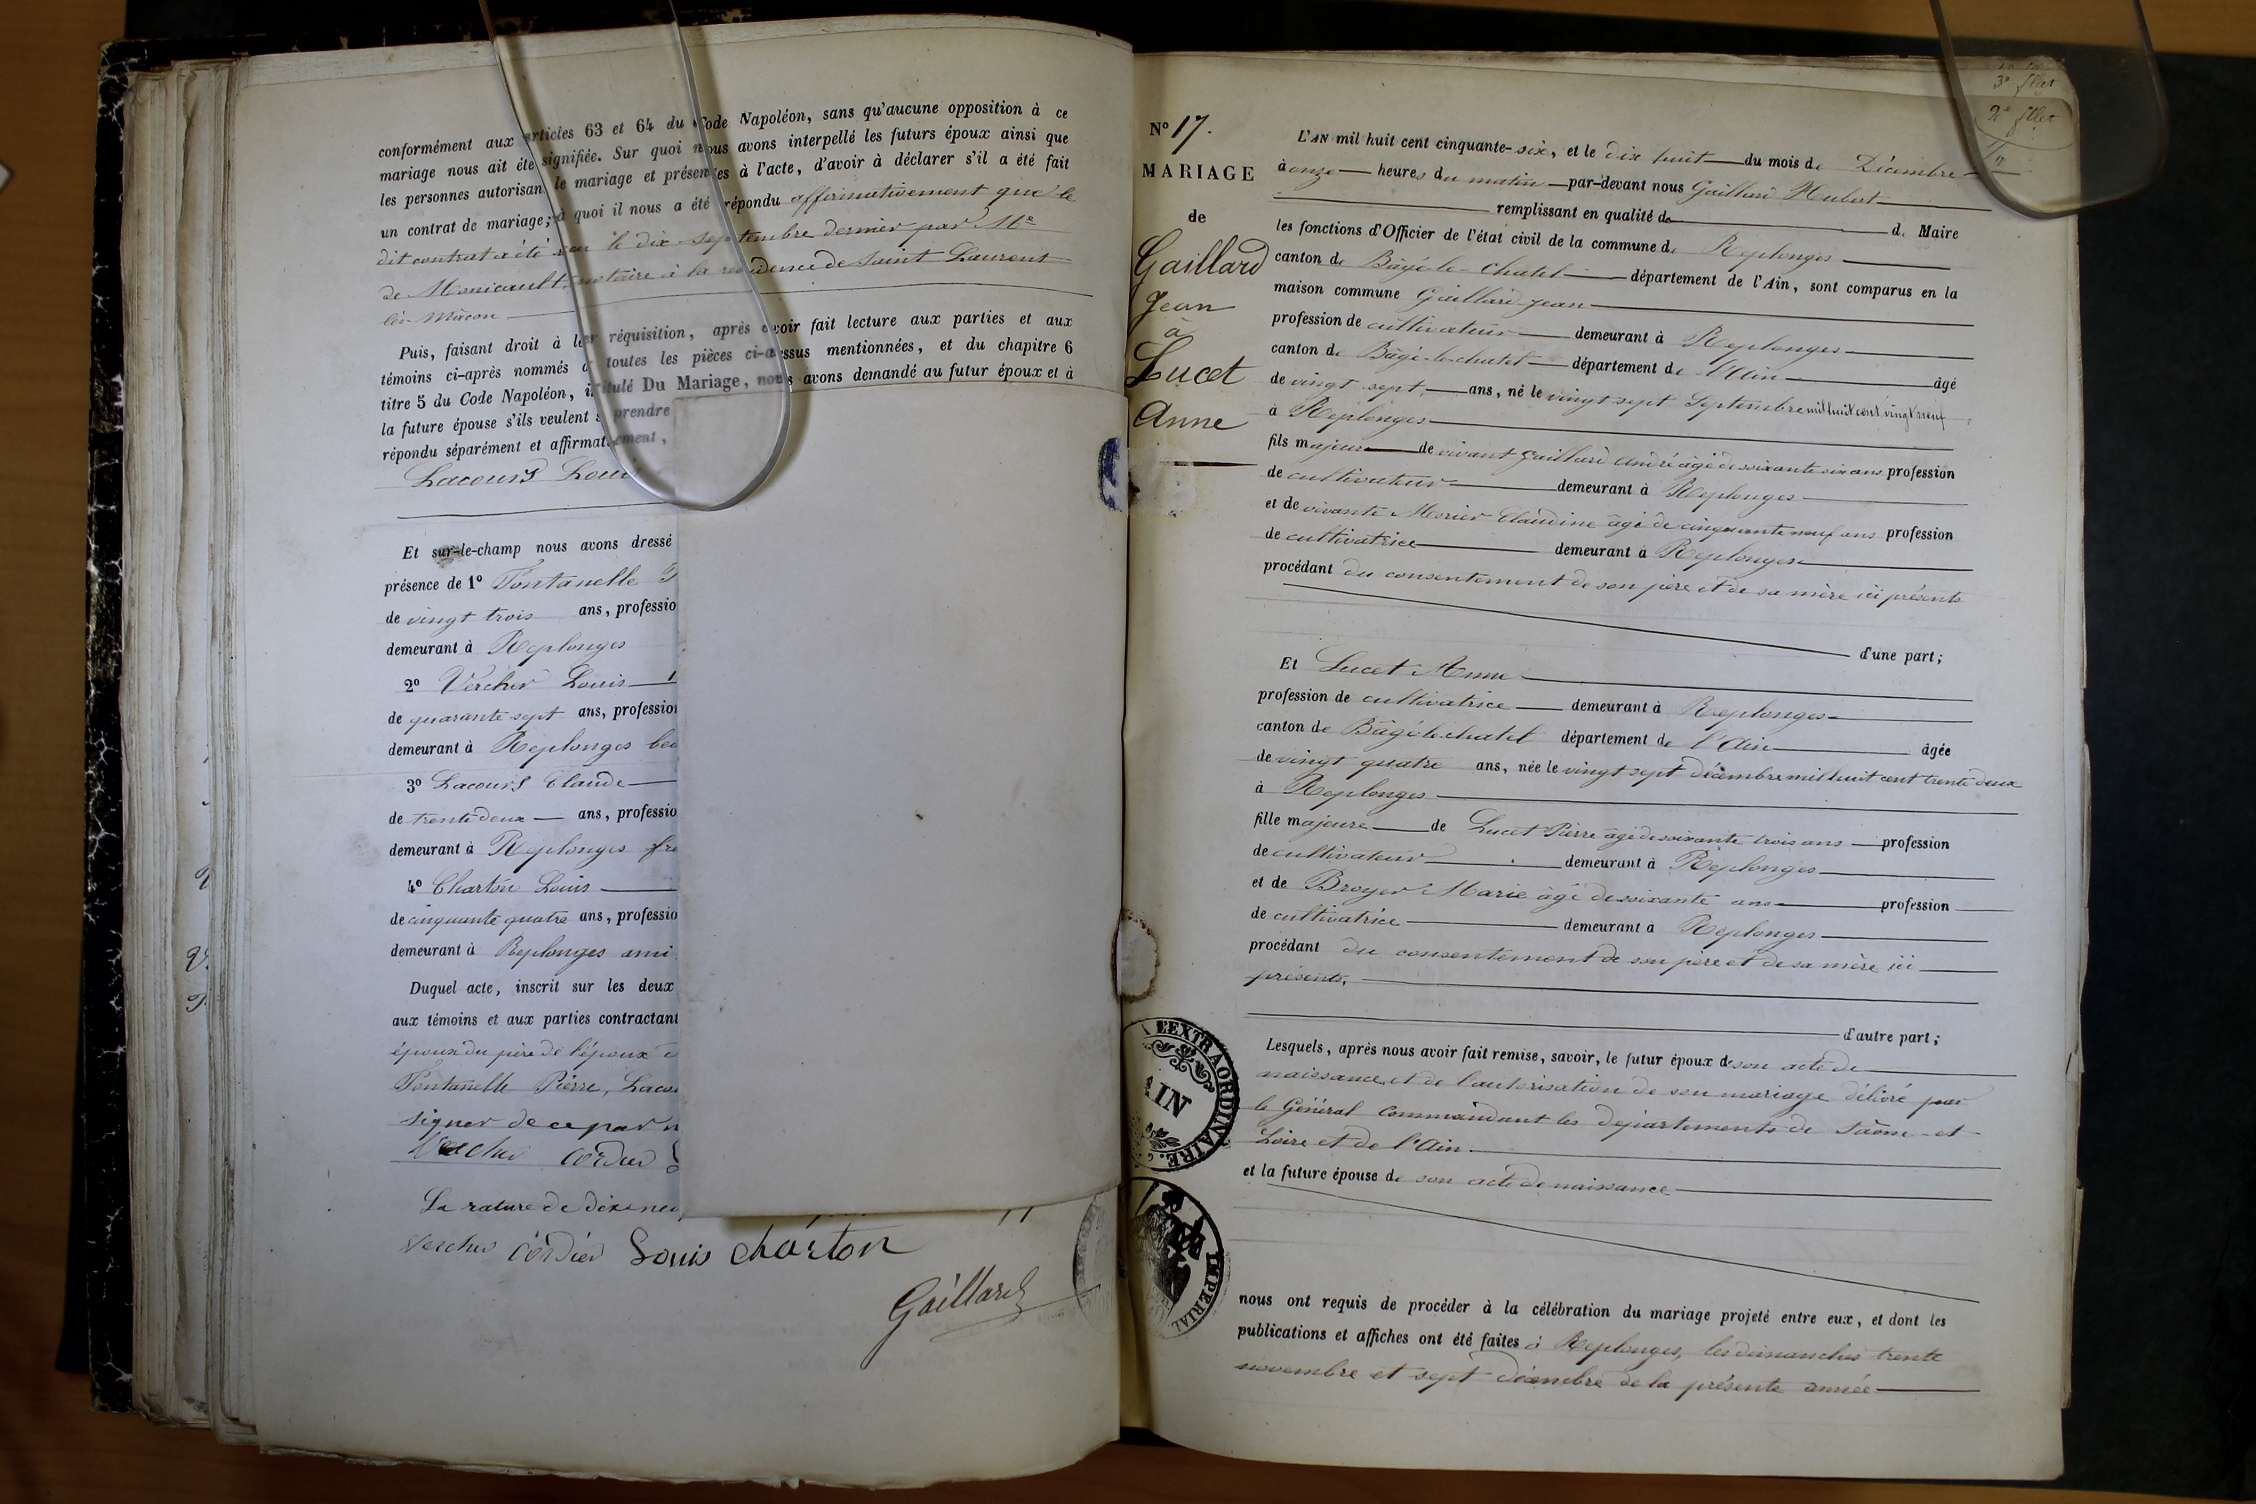 conformément aux articles 63 et 64 du Code Napoléon, sans qu'aucune opposition à ce
mariage nous ait été signifiée. Sur quoi nous avons interpellé les futurs époux ainsi que
les personnes autorisan le mariage et présentes à l'acte, d'avoir à déclarer s'il a été fait
un contrat de mariage; à quoi il nous a été répondu affirmativement que le
dit contrat a été le dix septembre dernier par Me
de Monicault notaire à la résidence de Saint Laurent
lès-Mâcon
Puis, faisant droit à leur réquisition, après avoir fait lecture aux parties et aux
témoins ci-après nommés de toutes les pièces ci-dessus mentionnées, et du chapitre 6
titre 5 du Code Napoléon, intitulé Du Mariage, nous avons demandé au futur époux et à
la future épouse s'ils veulent se prendre
répondu séparément et affirmativement,
Lacours Loui
Et sur-le-champ nous avons dressé
présence de 1º Fontanelle
de vingt trois ans, professio
demeurant à Replonges
2º Vercher Louis
de quarante sept ans, profession
demeurant à Replonges bea
3º Lacours Claude
de trente deux ans, professio
demeurant à Replonges frè
4º Charton Louis
de cinquante quatre ans, professio
demeurant à Replonges ami
Duquel acte, inscrit sur les deux
aux témoins et aux parties contractant
époux du père de l'époux
Fontanelle Pierre, Laco
signer de ce par n
Vercher Cordier
La rature de dix neu
Vercher Cordier Louis Charton
Gaillard
3e fllet
2e fllet
Nº 17.
MARIAGE
de
Gaillard
Jean
à
Lucet
Anne
L'AN mil huit cent cinquante-six, et le dix huit du mois de Décembre
à onze heures du matin par-devant nous Gaillard Hubert
remplissant en qualité de de Maire
les fonctions d'Officier de l'état civil de la commune de Replonges
canton de Bâgé-le-Chatel département de l'Ain, sont comparus en la
maison commune Gaillard Jean
profession de cultivateur demeurant à Replonges
canton de Bâgé-le-chatel département de l'Ain âgé
de vingt sept ans, né le vingt sept Septembre mil huit cent vingt neuf
à Replonges
fils majeur de vivant Gaillard André âgé de soixante six ans profession
de cultivateur demeurant à Replonges
et de vivante Morier Claudine âgé de cinquante neuf ans profession
de cultivatrice demeurant à Replonges
procédant du consentement de son père et de sa mère ici présents
d'une part;
Et Lucet Anne
profession de cultivatrice demeurant à Replonges
canton de Bâgé-le-chatel département de l'Ain âgée
de vingt quatre ans, née le vingt sept décembre mil huit cent trente deux
à Replonges
fille majeure de Lucet Pierre âgé de soixante trois ans profession
de cultivateur demeurant à Replonges
et de Broyer Marie âgé de soixante ans profession
de cultivatrice demeurant à Replonges
procédant du consentement de son père et de sa mère ici
présents,
d'autre part;
Lesquels, après nous avoir fait remise, savoir, le futur époux de son acte de
naissance et de l'autorisation de son mariage délivré par
le Général commandant les départements de Saône-et-
Loire et de l'Ain
et la future épouse de son acte de naissance
nous ont requis de procéder à la célébration du mariage projeté entre eux, et dont les
publications et affiches ont été faites à Replonges, les dimanches trente
novembre et sept décembre de la présente année
A L'EXTRAORDINAIRE
AIN
IMPERIAL